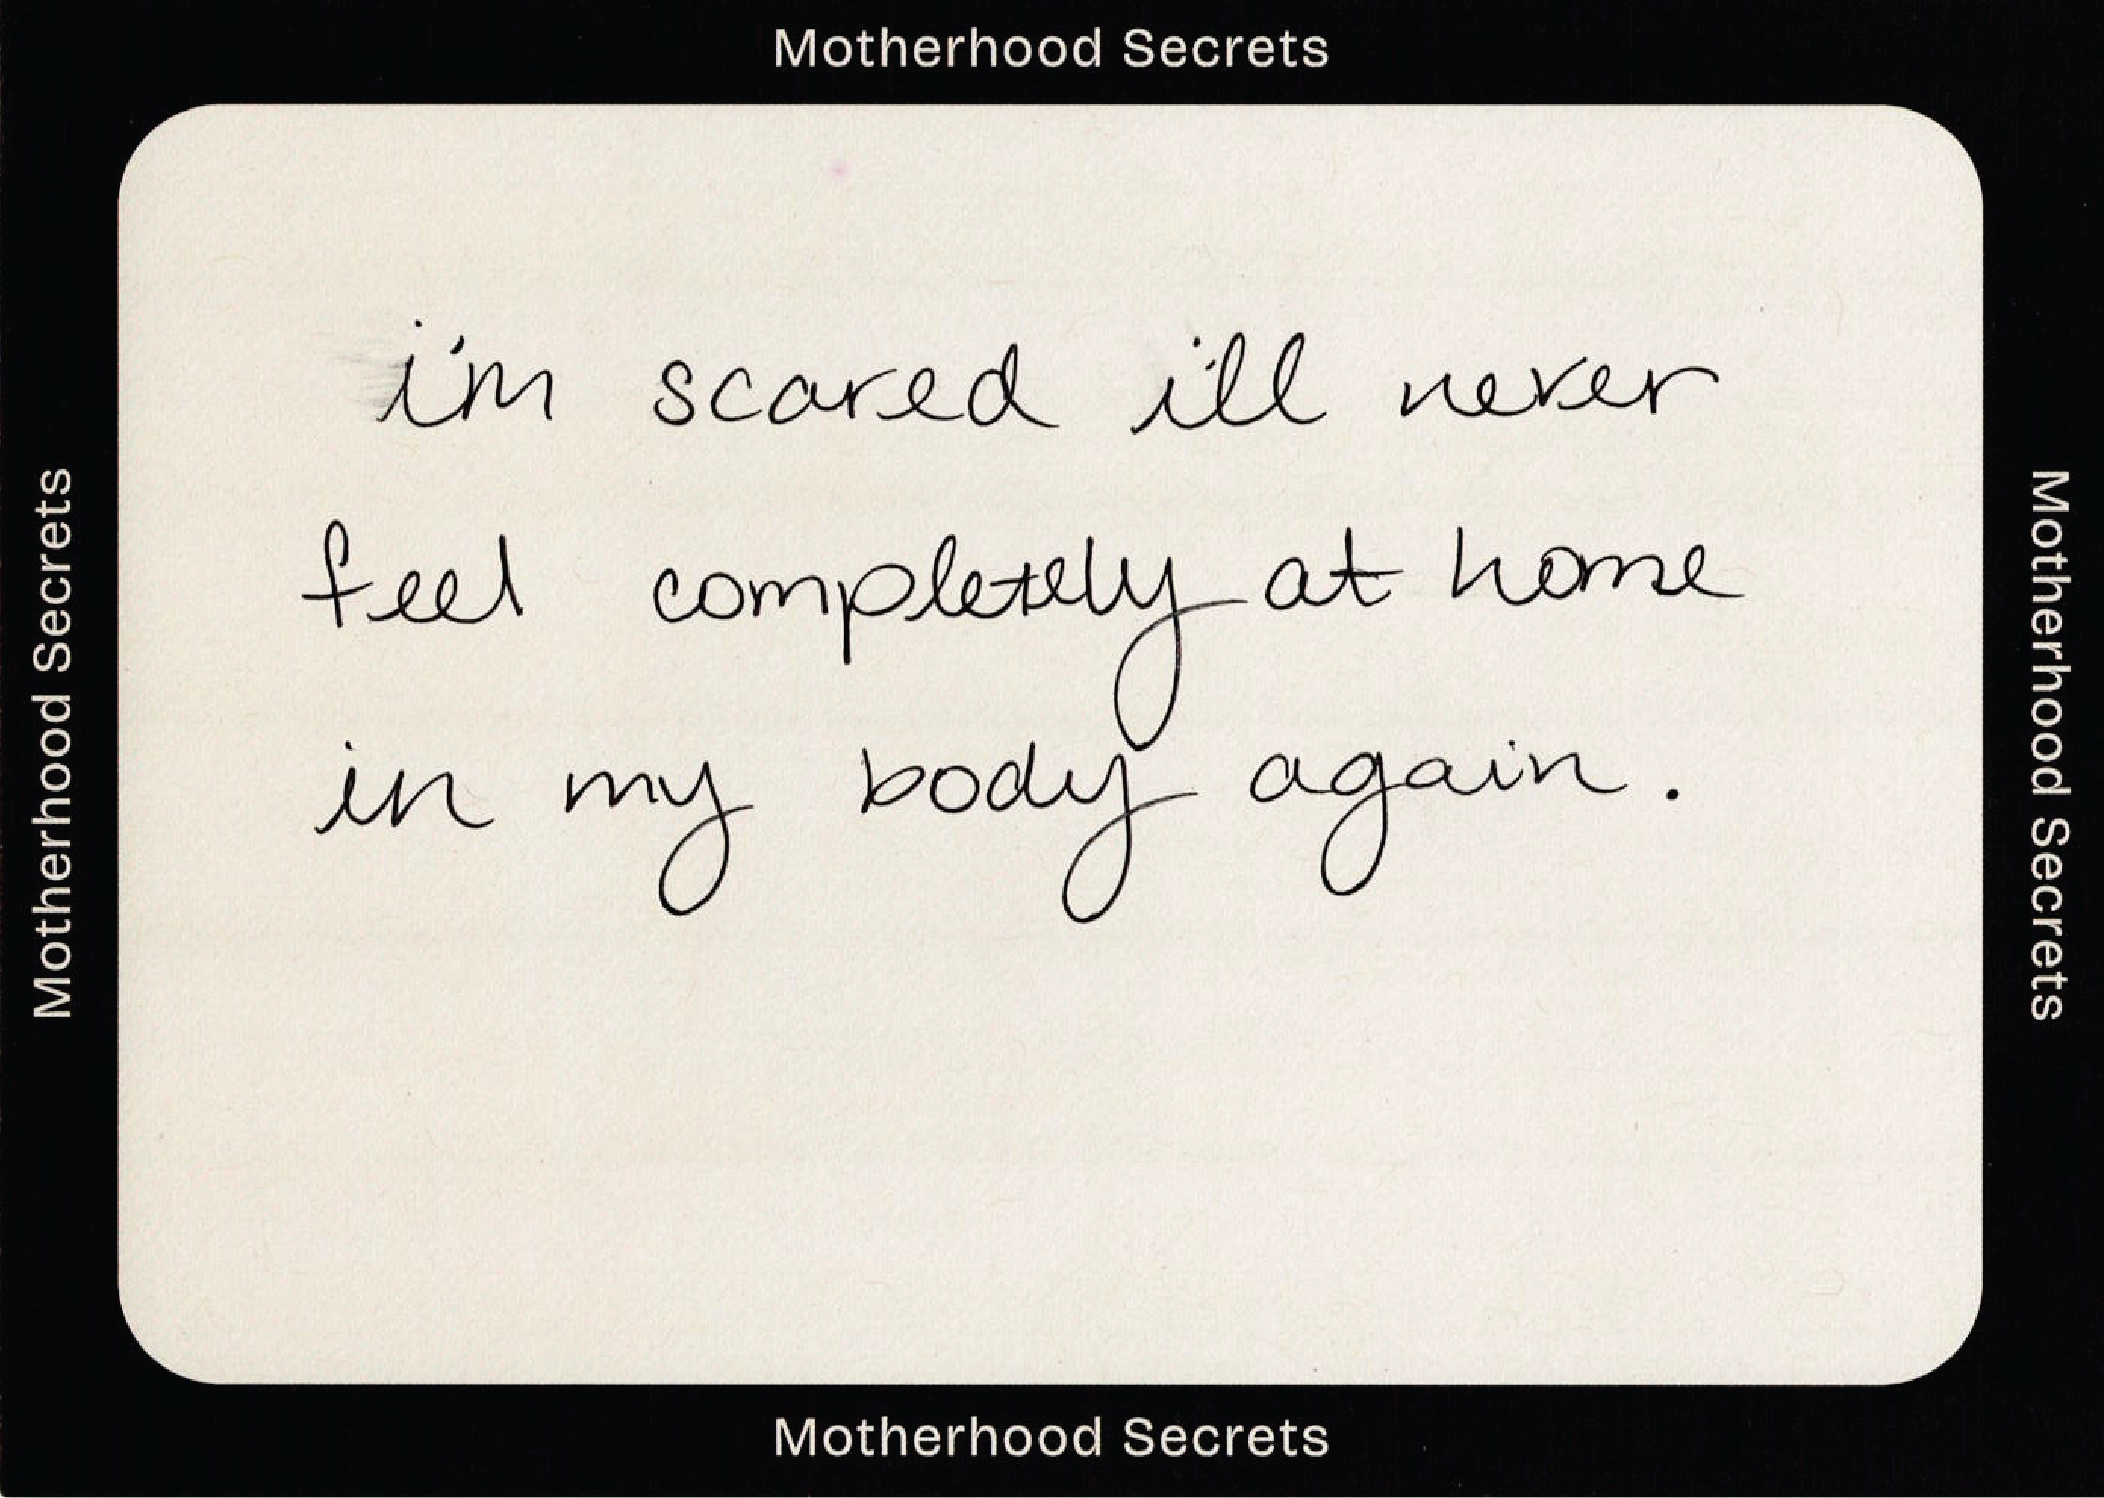 Motherhood Secrets
Motherhood Secrets
i'm scared i'll never
feel completely at home
in my body again.
Motherhood Secrets
Motherhood Secrets